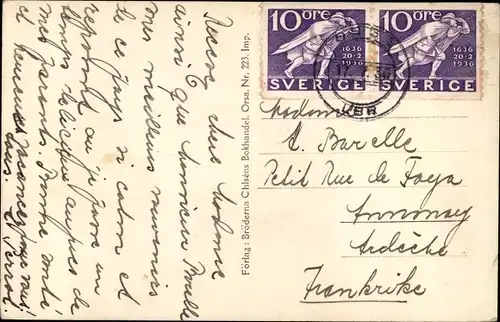 Recevez chère Madame
ainsi que Monsieur Barelle
mes meilleurs souvenirs
de ce pays si calme et
reposant où je passe un
temps délicieux auprès de
mes parents. Bonne santé
et heureuses vacances pour vous
tous.
10 ÖRE
1636
20-2
1936
SVERIGE
10 ÖRE
1636
20-2
1936
SVERIGE
Förlag: Bröderna Ohlséns Bokhandel, Orsa. Nr. 223. Imp.
Madame
A. Barelle
Petit Rue de Faya
Annonay
Ardèche
Frankrike